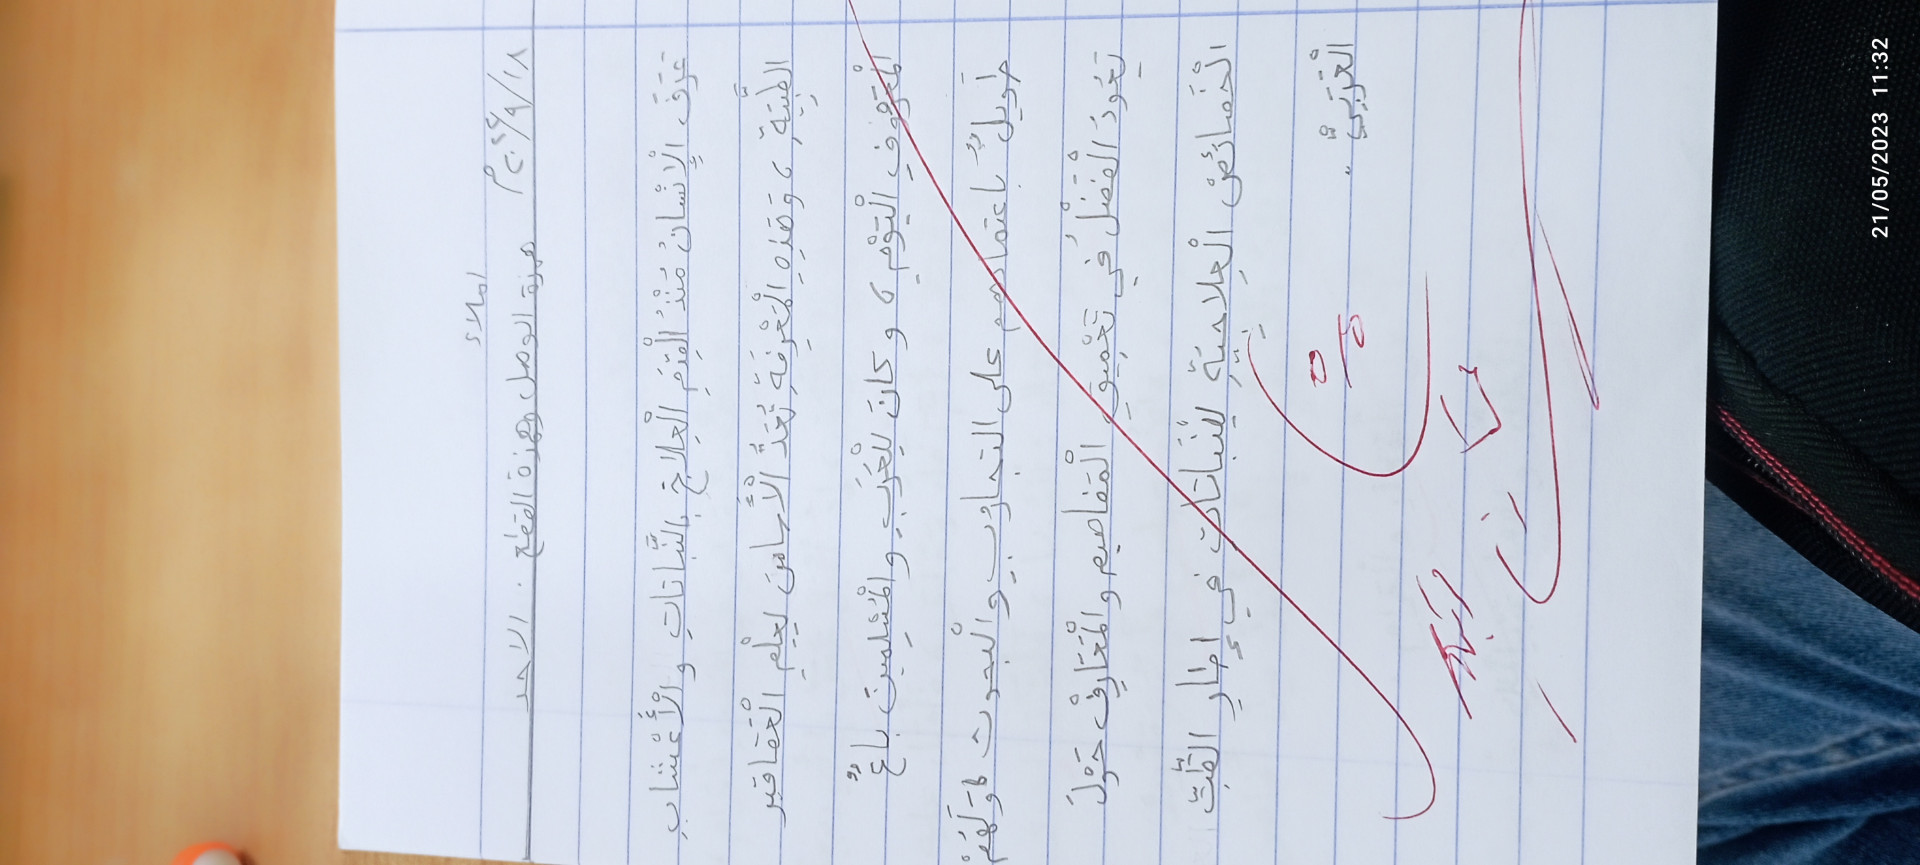 املاء
١٨/٩/٢٠٢٤م همزة الوصل وهمزة القطع . الاحد
عَرَفَ الْإِنْسَانُ مُنْذُ الْقِدَمِ الْعِلَاجَ بِالنَّبَاتَاتِ وَ الْأَعْشَابِ
الطِّبِّيَّةِ ، وَهَذِهِ الْمَعْرِفَةُ تُعَدُّ الْأَسَاسَ لِعِلْمِ الْعَقَاقِيرِ
الْمَعْرُوفِ الْيَوْمَ ، وَكَانَ لِلْعَرَبِ وَ الْمُسْلِمِينَ بَاعٌ
طَوِيلٌ باعتمادهم على التجارب و الْبحوث ، وَلَهُمْ
يَعُودُ الْفَضْلُ فِي تَعْمِيقِ الْمفاهيم و الْمَعَارِفْ حَوْلَ
الْخَصَائِصْ الْعِلاجيّةِ لِلنَّبَاتَاتِ فِي إِطارِ الطِّبِّ
الْعَرَبِيِّ "
21/05/2023 11:32